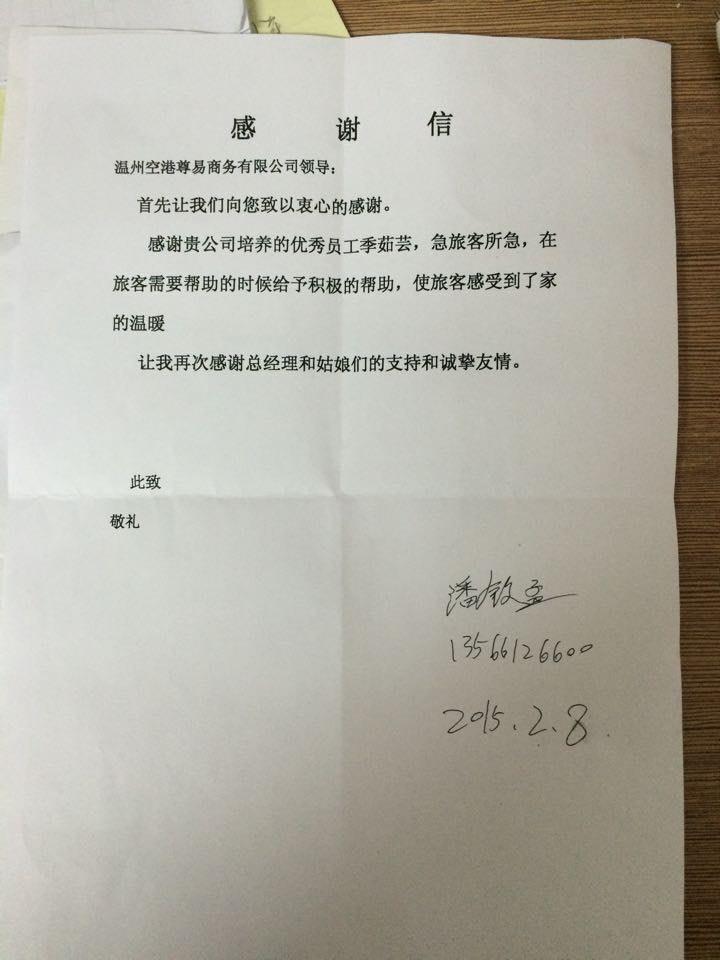 感 谢 信
温州空港尊易商务有限公司领导：
首先让我们向您致以衷心的感谢。
感谢贵公司培养的优秀员工季茹芸，急旅客所急，在
旅客需要帮助的时候给予积极的帮助，使旅客感受到了家
的温暖
让我再次感谢总经理和姑娘们的支持和诚挚友情。
此致
敬礼
潘
13566126600
2015.2.8.